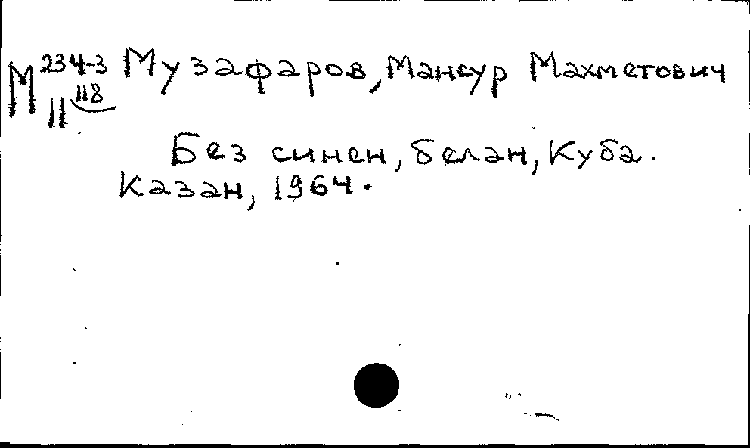 М 234-3 Музафаров, Мансур Махметович
11 118
Без синен, белән, Куба.
Казан, 1964.